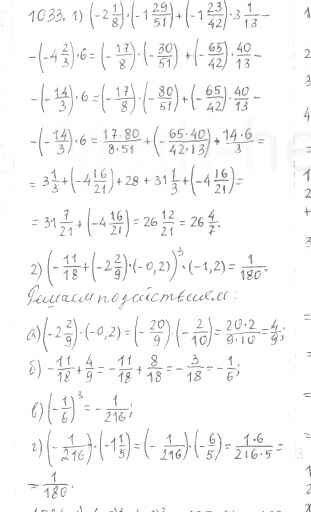 1033. 1) (-2 1/8)·(-1 29/51)+(-1 23/42)·3 1/13-
-(-4 2/3)·6=(-17/8)·(-30/51)+(-65/42)·40/13-
-(-14/3)·6=(-17/8)·(-80/51)+(-65/42)·40/13-
-(-14/3)·6=17·80/8·51+(-65·40/42·13)+14·6/3=
=3 1/3+(-4 16/21)+28+31 1/3+(-4 16/21)=
=31 7/21+(-4 16/21)=26 12/21=26 4/7.
2) (-11/18+(-2 2/9)·(-0,2))³·(-1,2)=1/180.
Решаем по действиям:
а) (-2 2/9)·(-0,2)=(-20/9)·(-2/10)=20·2/9·10=4/9;
б) -11/18+4/9=-11/18+8/18=-3/18=-1/6;
в) (-1/6)³=-1/216;
г) (-1/216)·(-1 1/5)=(-1/216)·(-6/5)=1·6/216·5=
=1/180.